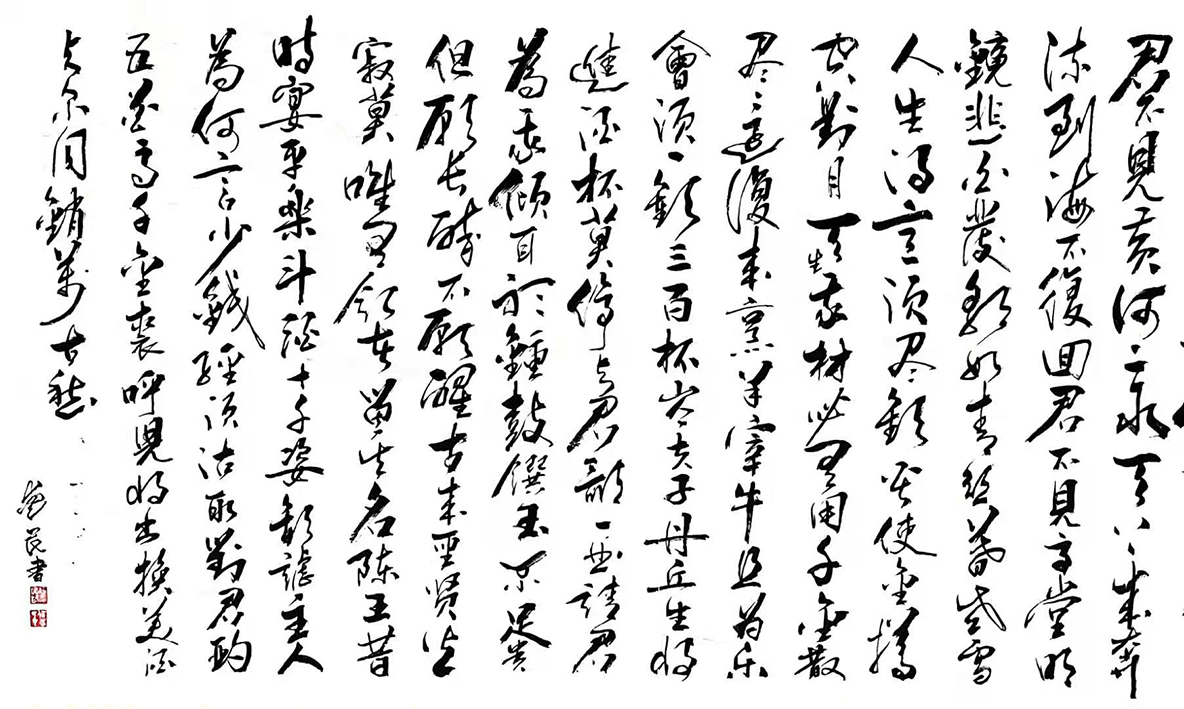 君不見黄河之水天上来奔
流到海不復回君不見高堂明
鏡悲白髮朝如青絲暮成雪
人生得意須尽歡莫使金樽
空對月天生我材必有用千金散
尽還復来烹羊宰牛且为乐
會須一飲三百杯岑夫子丹丘生将
進酒杯莫停与君歌一曲請君
為我傾耳聽鐘鼓饌玉不足貴
但願長醉不願醒古来聖贤皆
寂莫唯有飲者留其名陳王昔
時宴平樂斗酒十千恣歡謔主人
為何言少錢經須沽取對君酌
五花馬千金裘呼兒将出換美酒
与尔同銷萬古愁
書